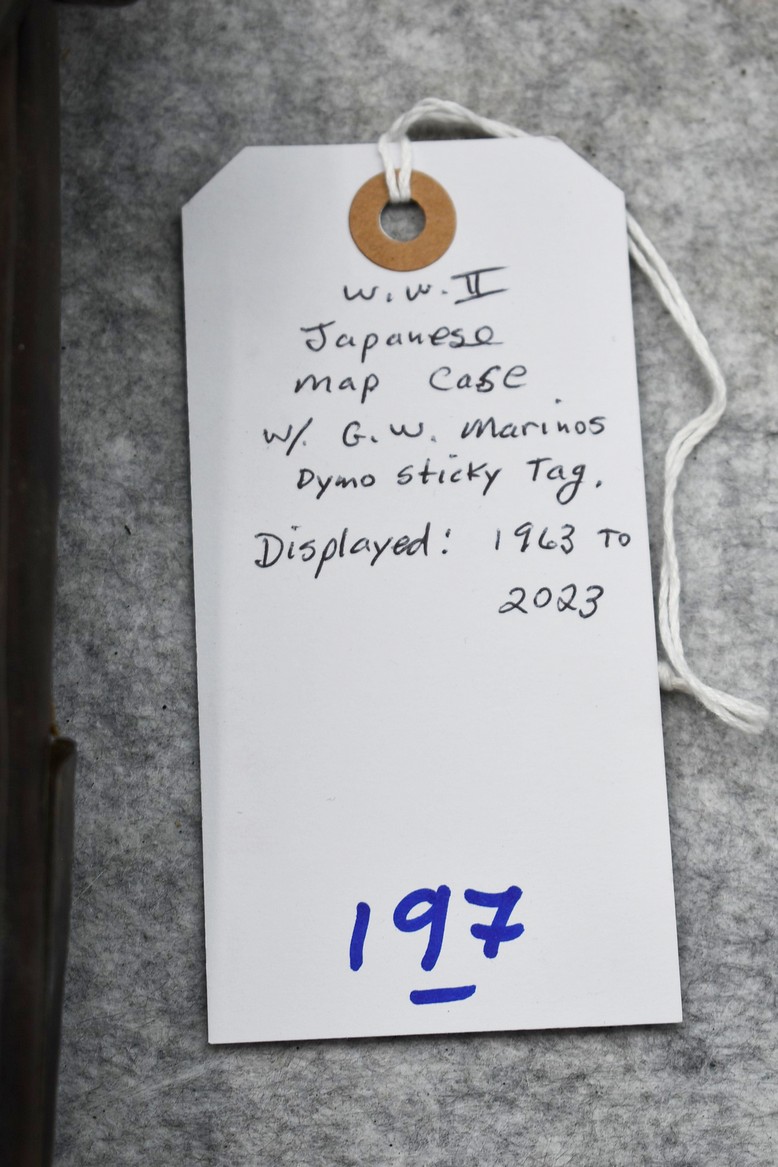 W.W.II
Japanese
map case
w/. G.W. Marinos
Dymo sticky Tag.
Displayed: 1963 To
2023
197